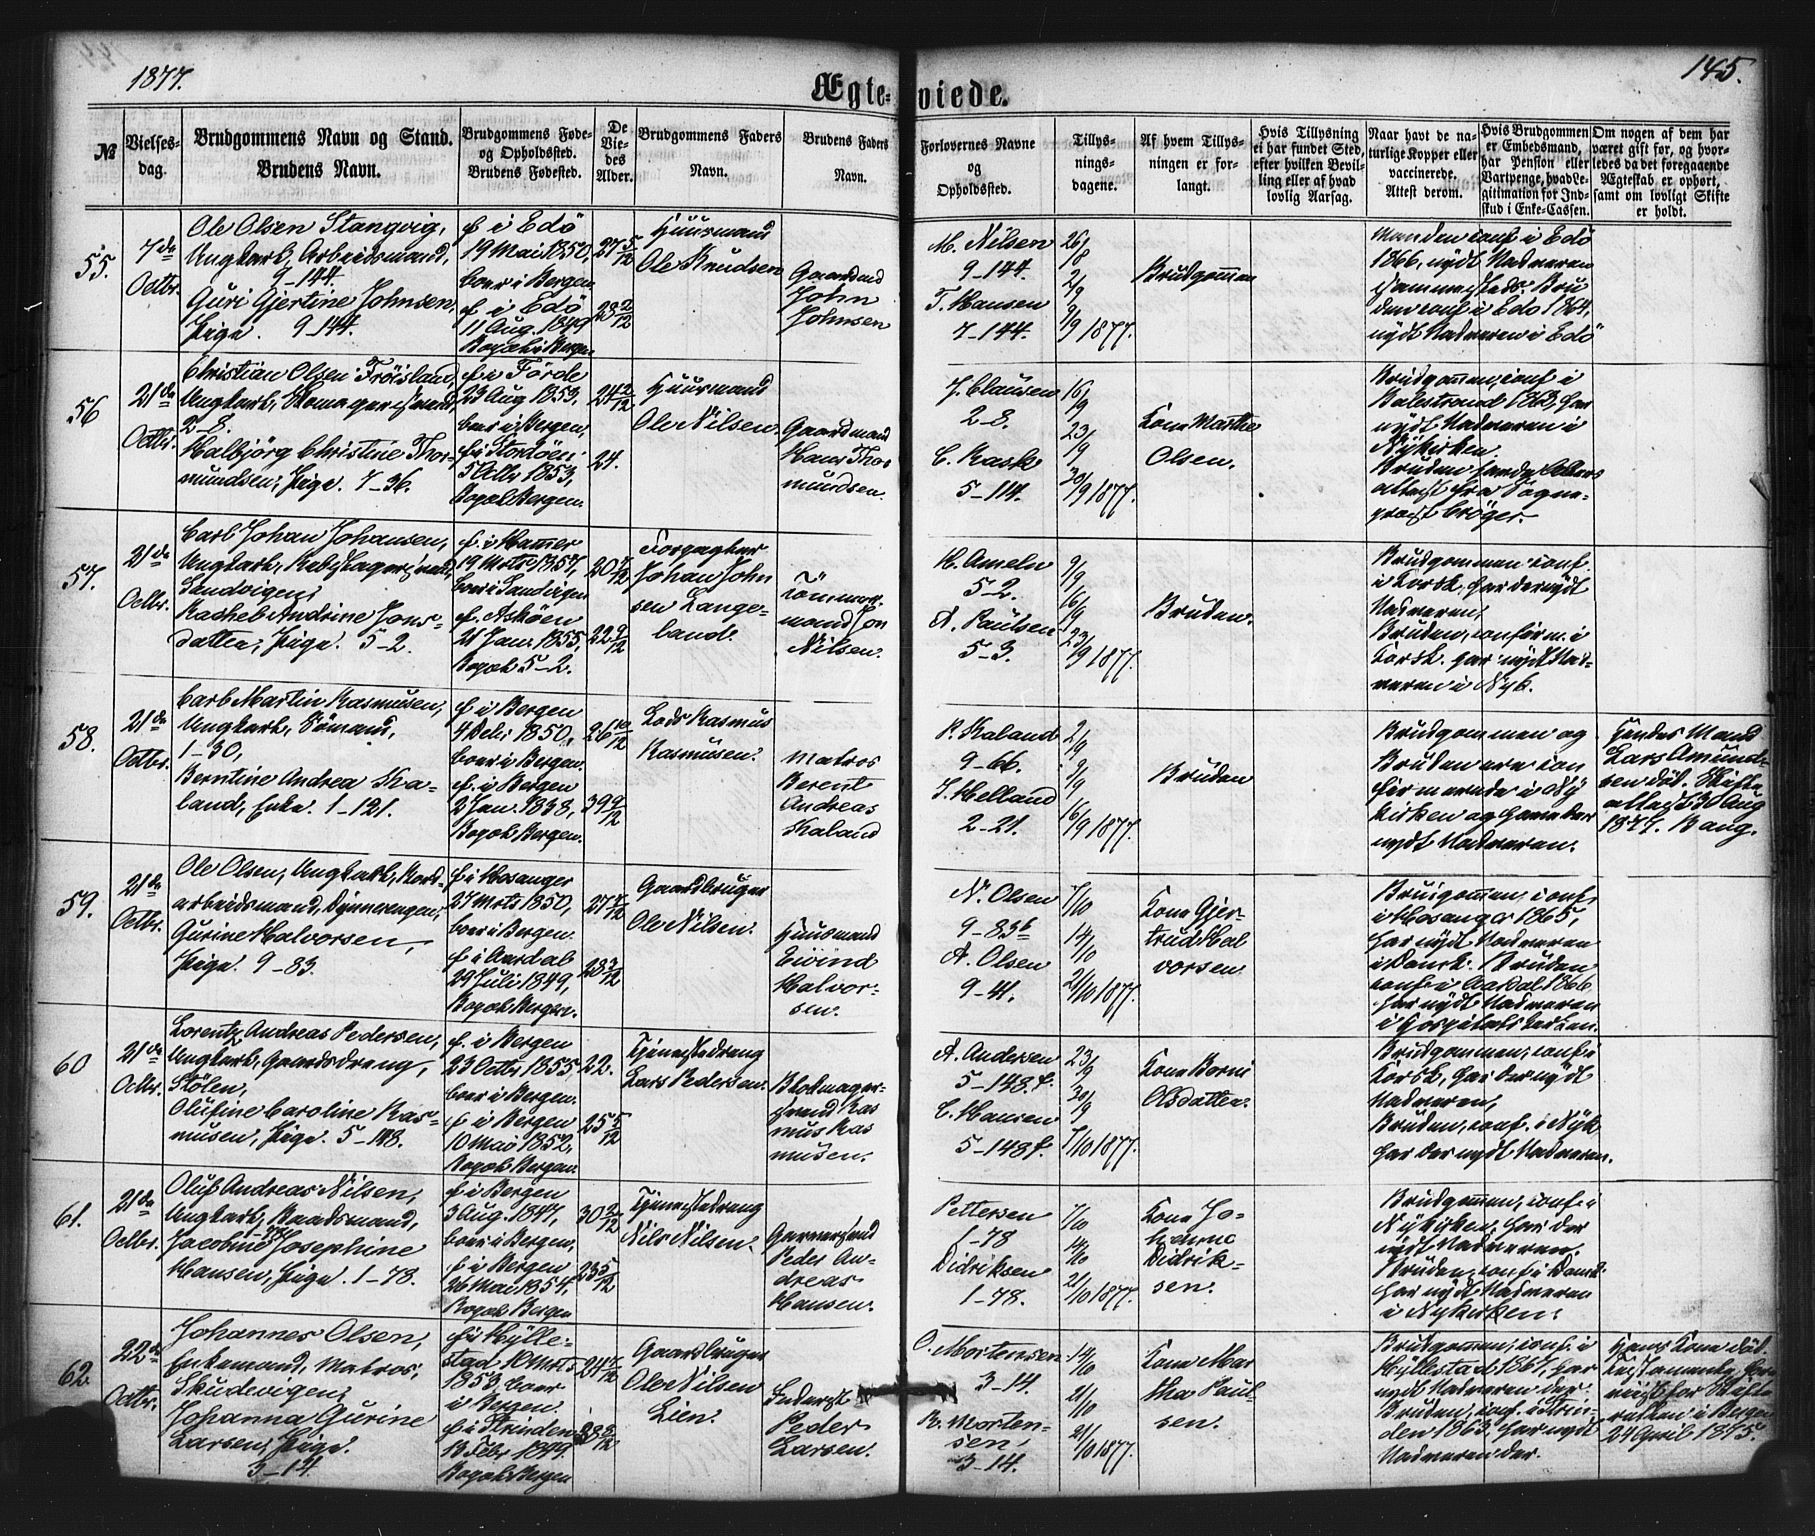 1877.
145.
Ægte-viede.
№
Vielses-
dag.
Brudgommens Navn og Stand.
Brudens Navn.
Brudgommens Føde-
og Opholdssted.
Brudens Fødested.
De
Vie-
des
Alder.
Brudgommens Faders
Navn.
Brudens Faders
Navn.
Forlovernes Navne
og
Opholdssted.
Tillys-
nings-
dagene.
Af hvem Tillys-
ningen er for-
langt.
Hvis Tillysning
ei har fundet Sted,
efter hvilken Bevil-
ling eller af hvad
lovlig Aarsag.
Naar havt de na-
turlige Kopper eller
vaccinerede.
Attest derom.
Hvis Brudgommen
er Embedsmand,
har Pension eller
Vartpenge, hvad Le-
gitimation for Ind-
skud i Enke-Cassen.
Om nogen af dem har
været gift for, og hvor-
ledes da det foregaaende
Ægteskab er ophørt,
samt om lovligt Skifte
er holdt.
55.
7de
Octbr.
Ole Olsen Stangvig,
Ungkarl, Arbeidsmand,
9–144.
Guri Gjertine Johnsen,
Pige. 9–144.
f. i Edö
19 Mai 1850,
boer i Bergen
f. i Edö
11 Aug. 1849
Bopæl i Bergen
27 5/12
28 2/12
Huusmand
Ole Knudsen
Gaardmd
John
Johnsen
M. Nilsen
9–144.
T. Hansen
7–144.
26/8
2/9
9/9 1877.
Brudgommen
Manden conf. i Edö
1866, nydt Nadveren
sammesteds. Bru
den conf. i Edö 1864,
nydt Nadveren i Edö
56
21de
Octbr.
Christian Olsen Fröisland,
Ungkarl, Skomagersvend,
2–8.
Malbjörg Christine Thor-
mundsen, Pige. 7–36.
f. i Förde
23 Aug 1853,
boer i Bergen,
f. i Stordöen
5 Octbr 1853,
Bopæl Bergen.
24 2/12
24.
Huusmand
Ole Nilsen.
Gaardmand
Hans Thor
mundsen.
J. Clausen
2–8.
C. Rask
5–114.
16/9
23/9
30/9 1877.
Kone Marthe
Olsen.
Brudgommen, conf. i
Balestrand 1868, har
nydt Nadveren i
Nykirken.
attest fra Sogne-
præst Cröger.
57.
21de
Octbr.
Carl Johan Johansen,
Ungkarl, Rebslagersvend,
Sandvigen,
Rachel Andrine Jons-
datter, Pige. 5–2.
f. i Hammer
19 Mrts 1857,
boer i Sandvigen
f. Asköen
21 Jan. 1855,
Bopæl 5–2.
20 7/12
22 9/12
Forpagter
Johan John
sen Lange-
land.
Tömmer-
mand Jon
Nilsen.
H. Ameln
5–2.
A. Paulsen
5–3.
9/9
16/9
23/9 1877.
Bruden.
Brudgommen conf.
i Korsk. har der nydt
Nadveren,
Bruden, conform. i
Korsk. har nydt Nad-
veren i Nyk.
58.
21de
Octbr.
Carl Martin Rasmusen,
Ungkarl, Sömand,
1–30,
Berntine Andrea Ka-
land, Enke. 1–121.
f. i Bergen
4 Debr 1850,
boer i Bergen.
f. i Bergen
2 Jan. 1838,
Bopæl Bergen.
26 10/12
39 9/12
Lods Rasmus
Rasmusen.
Matros
Berent
Andreas
Kaland
R. Kaland
9–66.
J. Helland
2–21.
2/9
9/9
16/9 1877.
Bruden
Brudgommen og
Bruden ere con
firmerede i Ny
kirken og have der
nydt Nadveren.
Hendes Mand
Lars Amund-
sen död. Skifte
attest 30 Aug
1877. Bang.
59.
21de
Octbr.
Ole Olsen, Ungkarl, Jord-
arbeidsmand,
Gurine Halvorsen,
Pige. 9–83.
f. i Hosanger
27 Mrts 1850,
boer i Bergen.
f. i Aardal
29 Juli 1849,
Bopæl Bergen.
28 3/12
Gaardbruger
Ole Nilsen.
Huusmand
Eivind
Halvor-
sen.
N. Olsen
9–83b
A. Olsen
9–41.
7/10
14/10
21/10 1877.
Kone Gjer-
trud Hal
vorsen
Brudgommen, conf.
i Hosanger 1865,
har nydt Nadveren
i Domk. Bruden
conf. i Aardal 1866
har nydt Nadveren
i Hospitalskirken.
60
21de
Octbr.
Lorentz Andreas Pedersen,
Ungkarl, Gaardsdreng,
Stölen,
Olufine Caroline Ras-
musen, Pige. 5–148.
f. i Bergen
23 Octbr 1855,
boer i Bergen.
f. i Bergen
10 Mai 1852,
Bopæl Bergen
22.
25 5/12
Tjenestedreng
Lars Pedersen.
Blokmager-
svend Ras
mus Ras
musen.
A. Andersen
5–148f.
C. Hansen
5–148f.
23/9
30/9
7/10 1877.
Kone Borni
Olsdatter.
Brudgommen, conf. i
Korsk, har der nydt
Nadveren,
Bruden, conf. i Nyk,
har der nydt Nadveren.
61.
21de
Octbr.
Oluf Andreas Nilsen,
Ungkarl, Baadsmand,
1–78
Jacobine Josephine
Hansen, Pige. 1–78.
f. i Bergen
3 Aug. 1847,
boer i Bergen,
f. i Bergen
26 Mai 1854,
Bopæl Bergen
30 2/12
23 5/12
Tjenestedreng
Nils Nilsen.
Garversvend
Peder An-
dreas
Hansen.
Pettersen
1–78
Didriksen
1–78.
7/10
14/10
21/10 1877.
Kone Jo-
hanne
Didrik-
sen.
Brudgommen, conf. i
Nykirken, har der
nydt Nadveren.
Bruden, conf. i Domk.
har nydt Nadveren
i Nykirken.
62.
22de
Octbr.
Johannes Olsen,
Enkemand, Matros,
Skudevigen,
Johanna Gurine
Larsen, Pige.
3–14.
f. i Hylle-
stad 10 Mrts
1853, boer
i Bergen.
f. i Strinden
13 Febr 1849.
Bopæl Bergen
24 7/12
28 8/12
Gaardbruger
Ole Nilsen
Lien.
Inderst
Peder
Larsen.
O. Mortensen
3–14.
R. Morten-
sen,
3–14.
14/10
21/10
21/10 1877.
Kone Mar
tha Paul-
sen.
Brudgommen, conf. i
Hyllestad 1867, har
nydt Nadveren der.
Bruden, conf. i Strin-
den 1863, har nydt
Nadveren der.
Hans Kone död.
retten i Bergen
24 April 1875.